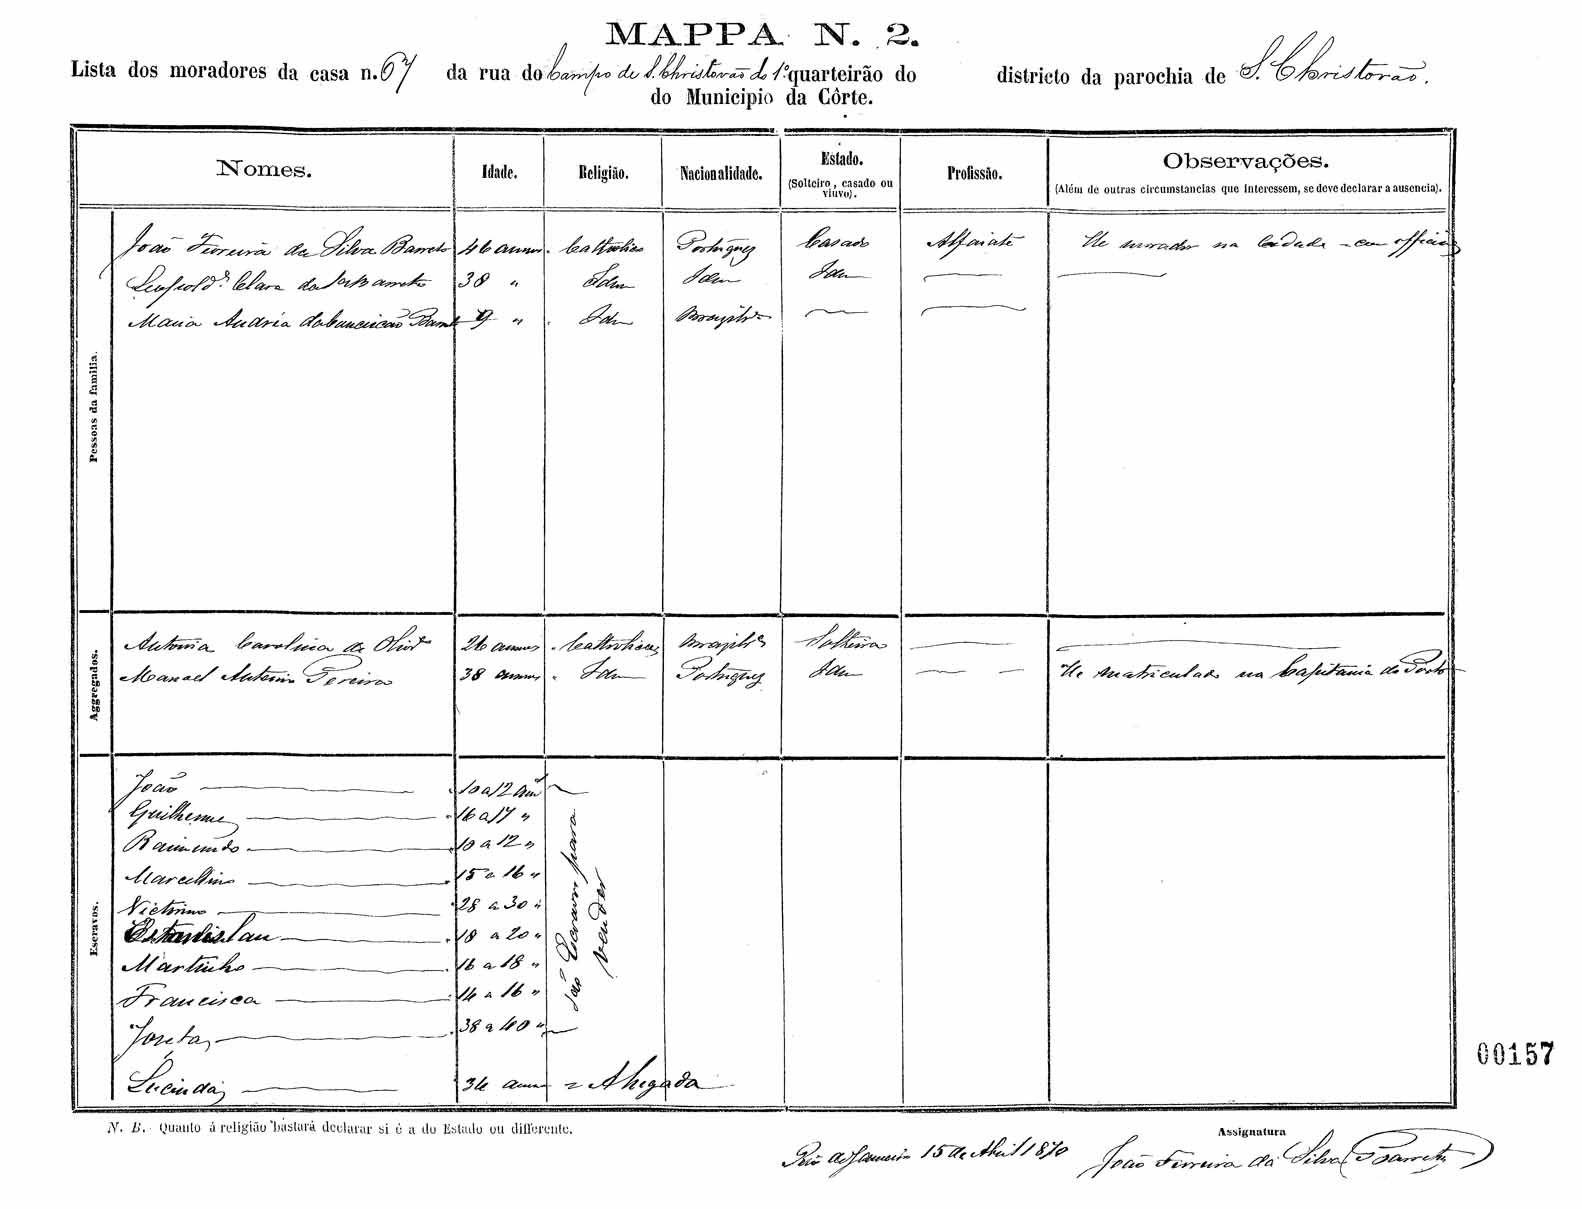 MAPPA N. 2.
Lista dos moradores da casa n. 67 da rua do Campo de S. Christovão do 1º quarteirão do districto da parochia de S. Christovão.
do Municipio da Côrte.
Nomes. Idade. Religião. Nacionalidade. Estado. (Solteiro, casado ou viuvo). Profissão. Observações. (Além de outras circumstancias que interessem, se deve declarar a ausencia).
Pessoas da familia.
João Ferreira da Silva Barreto 46 annos Catholico Portuguez Casado Alfaiate He morador na Cidade com
Clara da Barreto 38 " Idm Idm Idm
Maria da Conceicão 9 " Idm
Aggregados.
Antonia Carolina de 26 annos Catholica Solteira
Manoel Antonio Pereira 38 annos Idm Portuguez Idm He matriculado na Capitania do Porto
Escravos.
João 10 a 12
Guilherme 16 a 17 "
Raimundo 10 a 12 "
Marcellino 15 a 16 "
Victorino 28 a 30 "
Estanislau 18 a 20 "
Martinho 16 a 18 "
Francisca 14 a 16 "
38 a 40 "
são para vender
Lucinda 34 annos = Alugada
00157
N. B. Quanto á religião bastará declarar si é a do Estado ou differente.
Assignatura
Rio de Janeiro 15 de Abril 1870 João Ferreira da Silva Barreto